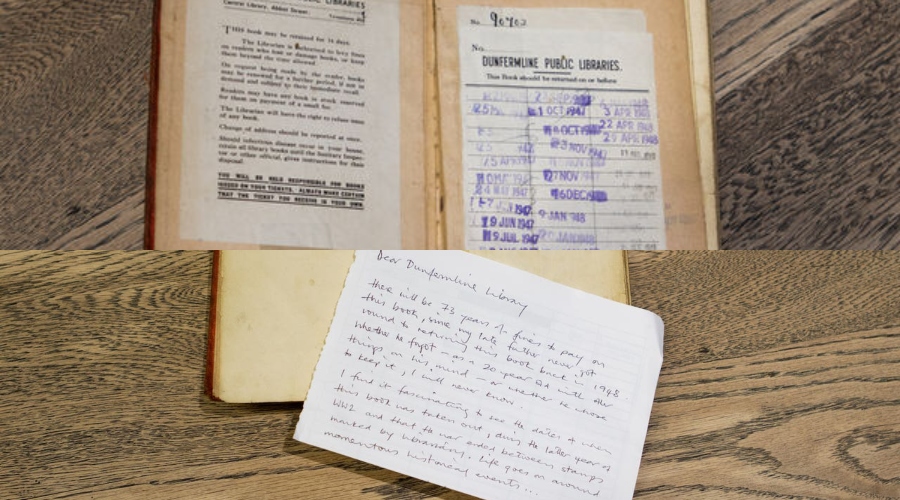 LIBRARIES
Central Library, Abbot Street. Telephone
THIS book may be retained for 14 days.
The Librarian is authorised to levy fines
on readers who lose or damage books, or keep
them beyond the time allowed.
On request being made by the reader, books
may be renewed for a further period, if not in
demand and subject to their immediate recall.
Readers may have any book in stock reserved
for them on payment of a small fee.
The Librarian will have the right to refuse issue
of any book.
Change of address should be reported at once.
Should infectious disease occur in your house,
retain all library books until the Sanitary Inspec-
tor or other official, gives instructions for their
disposal.
YOU WILL BE HELD RESPONSIBLE FOR BOOKS
ISSUED ON YOUR TICKETS. ALWAYS MAKE CERTAIN
THAT THE TICKET YOU RECEIVE IS YOUR OWN.
No. 90702
No.
DUNFERMLINE PUBLIC LIBRARIES.
This Book should be returned on or before
1 OCT 1947 3 APR 1948
OCT 1947 22 APR 1948
3 NOV 1947 29 APR 1948
1947 NOV 1947
24 1947 6 DEC 194
7 JUN 1947
19 JUN 1947 9 JAN 1948
19 JUL 1947 20 JAN 1948
Dear Dunfermline Library
there will be 73 years of fines to pay on
this book, since my late father never got
round to returning this book back in 1948
whether he forgot – as a 20 year old with other
things on his mind – or whether he chose
to keep it, I will never know.
I find it fascinating to see the dates of when
this book was taken out, during the latter year of
WW2 and that the war ended between stamps
marked by librarians. Life goes on around
momentous historical events...